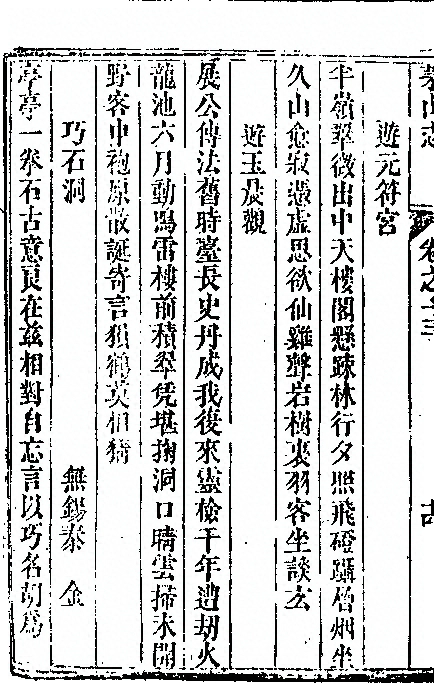 茅山志 卷之十三
遊元符宮
半嶺翠微出中天樓閣懸疎林行夕照飛磴躡層烟坐
久山愈寂憑虛思欲仙雞聲岩樹裏羽客坐談玄
遊玉晨觀
展公傳法舊時臺長史丹成我後來靈檢千年遭刼火
龍池六月動鳴雷樓前積翠凭堪掬洞口晴雲掃未開
野客中袍原散誕寄言猿鶴莫相猜
巧石洞 無錫秦金
亭亭一拳石古意良在兹相對自忘言以巧名胡爲